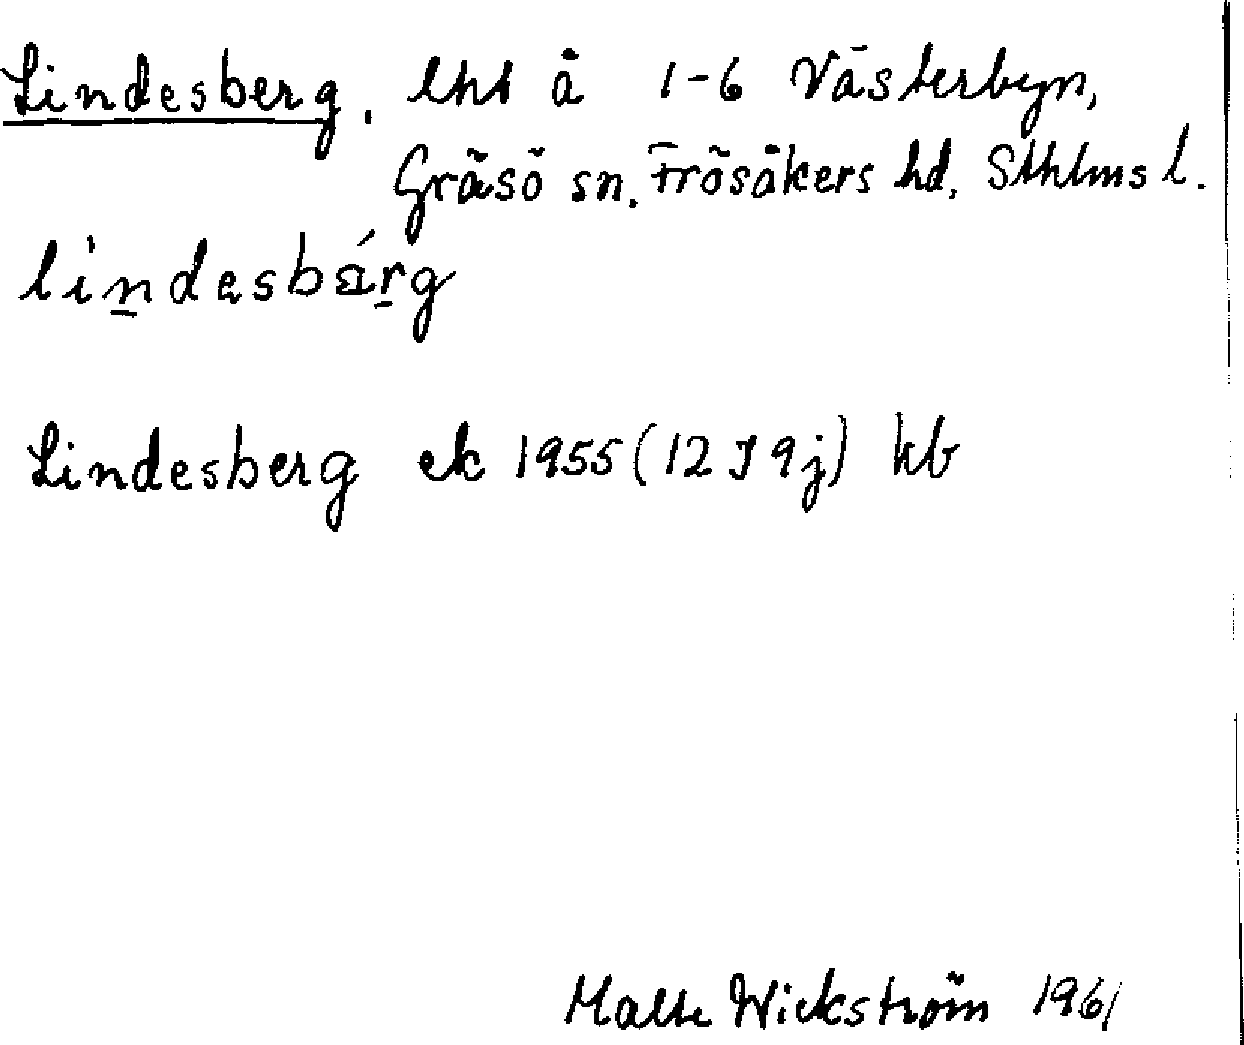 Lindesberg, lht å 1-6 Västerbyn,
Gräsö sn. Frösåkers hd, Sthlms l.
lindesbärg
Lindesberg ek 1955 (12 J 9j) kb
Malte Wickström 1961